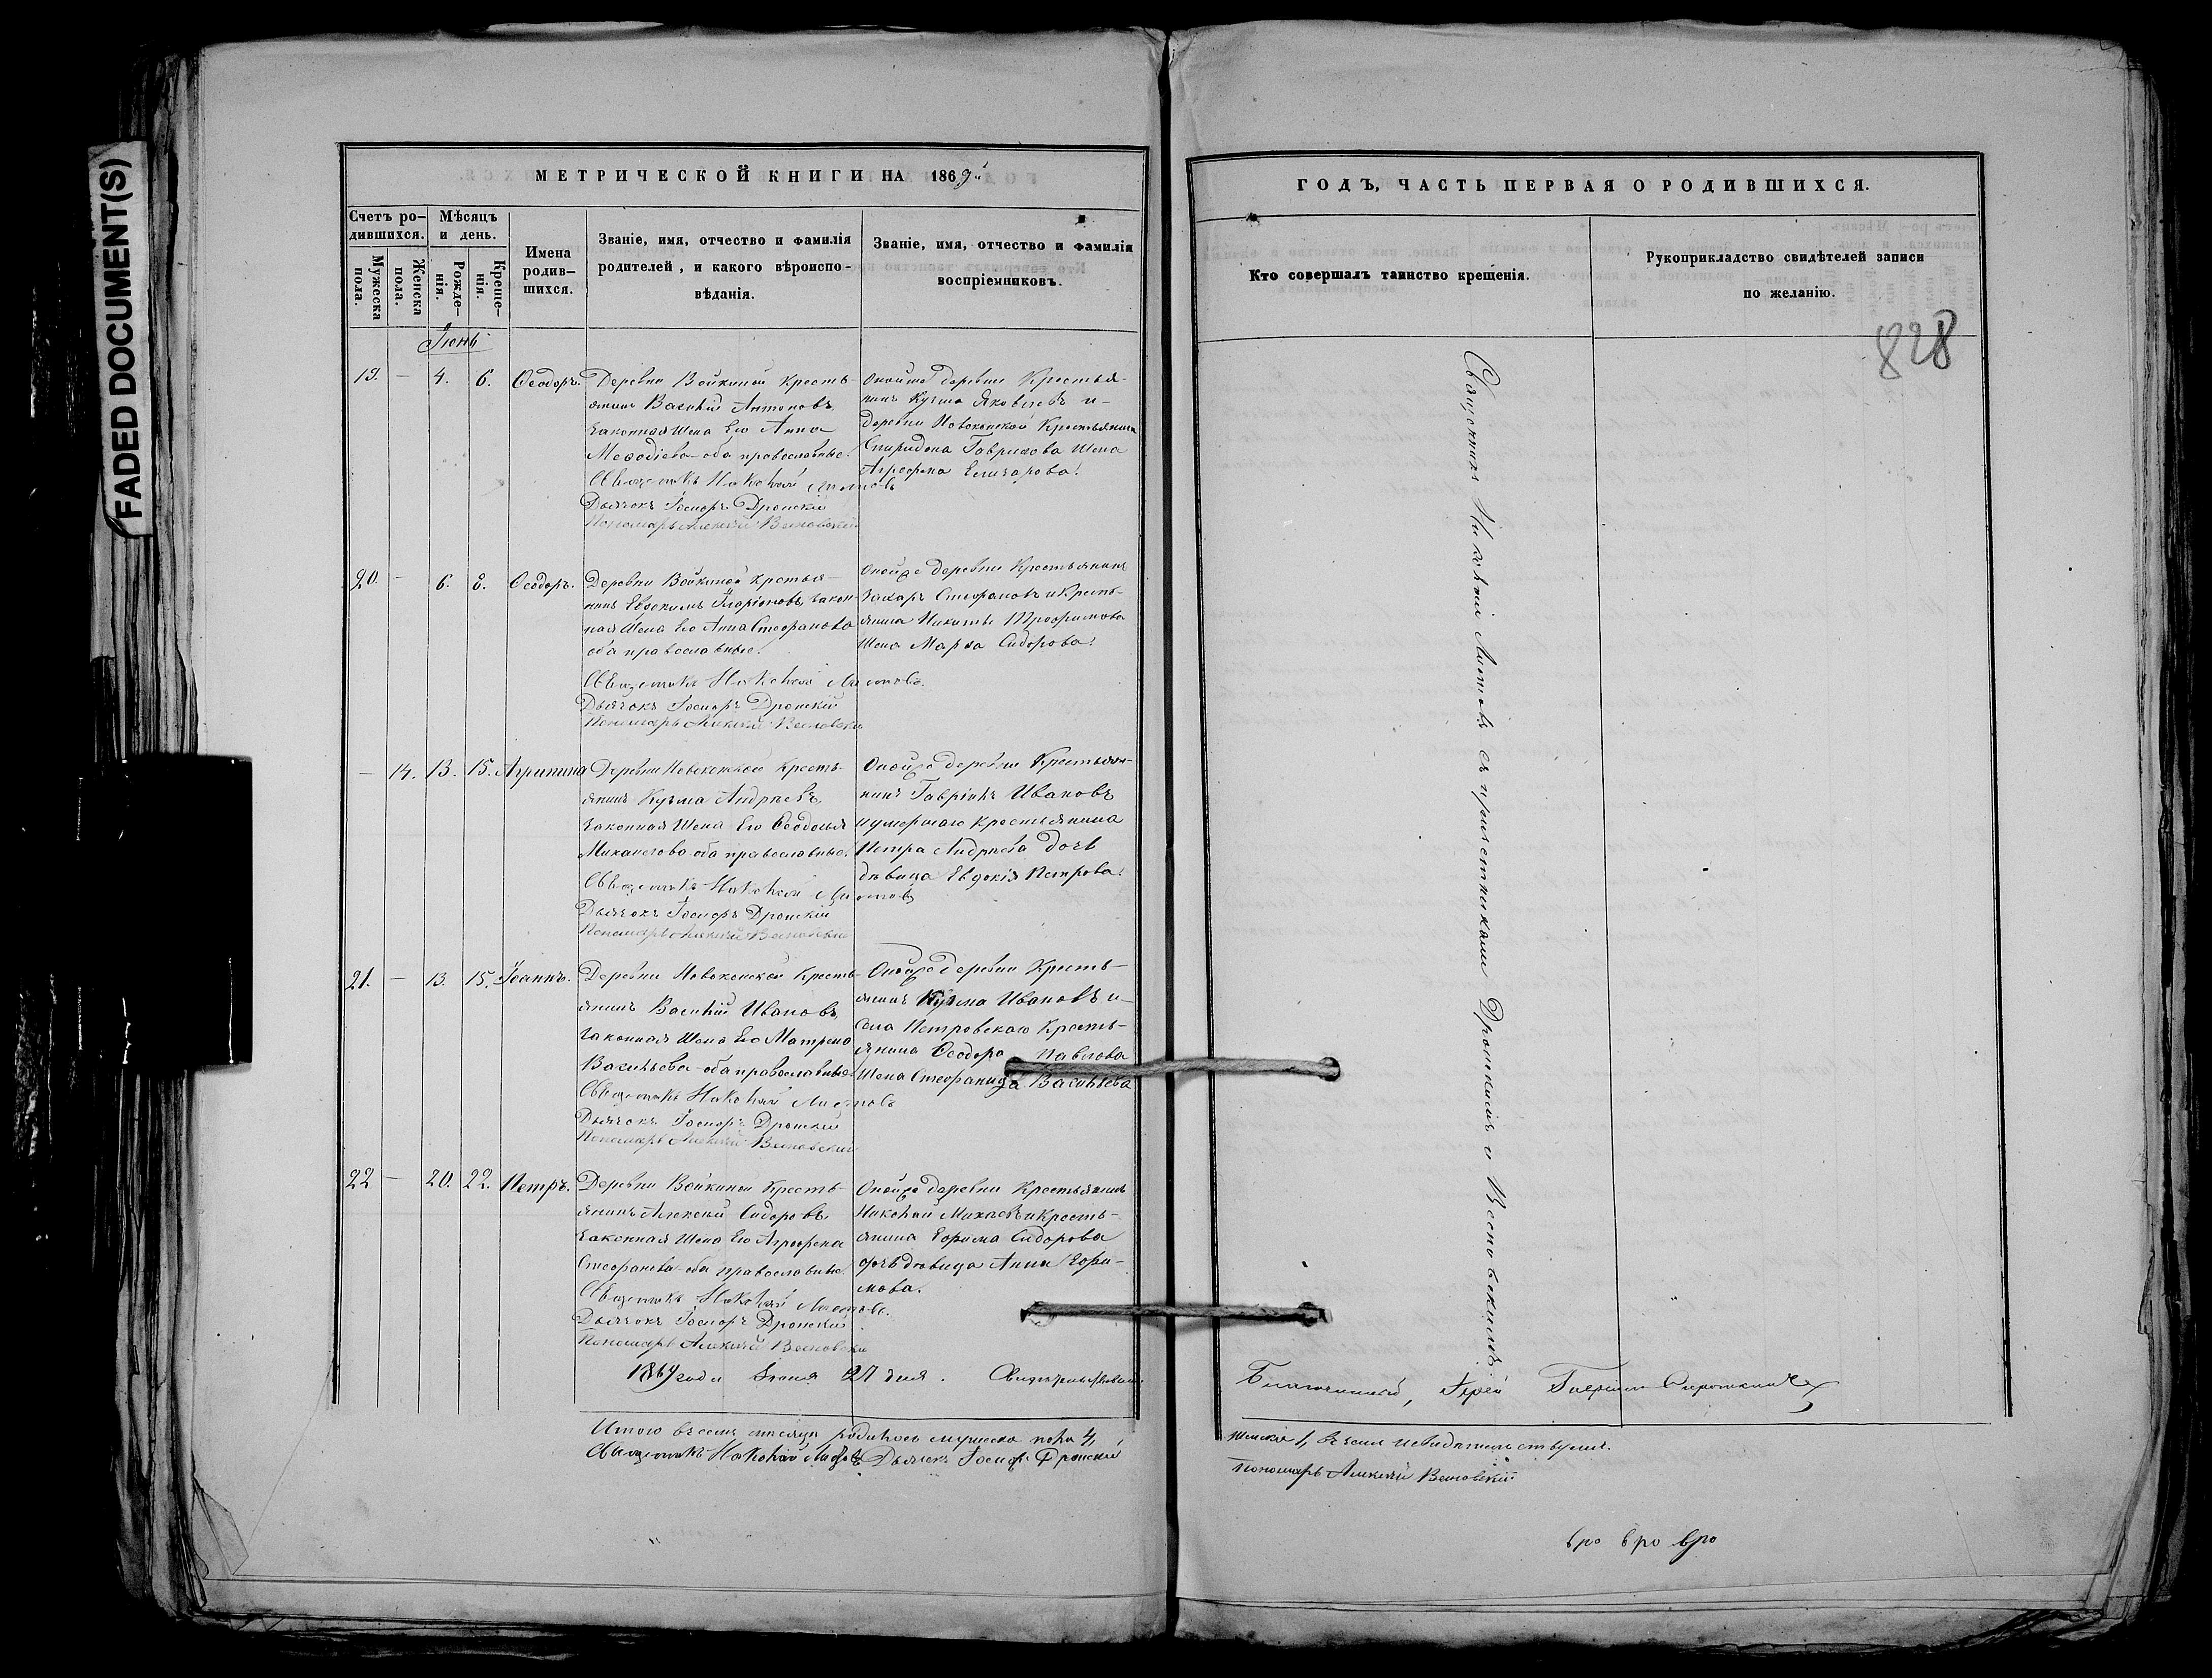 FADED DOCUMENT(S)
МЕТРИЧЕСКОЙ КНИГИ НА 1869й
Счетъ ро-
дившихся.
Мужеска
пола.
Женска
пола.
Мѣсяцъ
и день.
Рожде-
нія.
Креще-
нія.
Имена
родив-
шихся.
Званіе, имя, отчество и фамилія
родителей, и какого вѣроиспо-
вѣданія.
Званіе, имя, отчество и фамилія
воспріемниковъ.
Іюнь
19. — 4. 6. Ѳеодоръ.
Деревни Войкиной Кресть-
янинъ Василій Антоновъ,
законная жена его Анна
Меѳодіева оба православные.
Священникъ Николай Листовъ
Дьячокъ Іосифъ Дронскій
Пономарь Алексѣй Весновскій
Оной же деревни Крестья-
нинъ Кузма Яковлевъ и-
деревни Новоконской Крестьянина
Спиридона Гаврилова жена
Агрефена Елизарова.
20. — 6. 8. Ѳеодоръ.
Деревни Войкиной Крестья-
нинъ Евдокимъ Иларіоновъ, закон-
ная жена его Анна Стефанова
оба православные.
Священникъ Николай Листовъ.
Дьячокъ Іосифъ Дронскій
Пономарь Алексѣй Весновскій
Оной же деревни Крестьянинъ
Захаръ Стефановъ и Кресть-
янина Никиты Трофимова
жена Марѳа Сидорова.
— 14. 13. 15. Агрипина
Деревни Новоконской Кресть-
янинъ Кузма Андреевъ,
законная жена его Ѳеодосья
Михаилова оба православные.
Священникъ Николай Листовъ
Дьячокъ Іосифъ Дронскій
Пономарь Алексѣй Весновскій
Оной же деревни Крестьян-
нинъ Гавріилъ Ивановъ
и умершаго крестьянина
Петра Андреева дочь
дѣвица Евдокія Петрова.
21. — 13. 15. Іоаннъ.
Деревни Новоконской Кресть-
янинъ Василій Ивановъ,
законная жена его Матрена
Васильева оба православные
Священникъ Николай Листовъ
Дьячокъ Іосифъ Дронскій
Пономарь Алексѣй Весновскій
Оной же деревни Кресть-
янинъ Кузма Ивановъ и-
села Петровскаго Кресть-
янина Ѳеодора Павлова
жена Стефанида Васильева
22 — 20. 22. Петръ.
Деревни Войкиной Кресть-
янинъ Алексѣй Сидоровъ
законная жена его Агрефена
Стефанова оба православные.
Священникъ Николай Листовъ.
Дьячокъ Іосифъ Дронскій
Пономарь Алексѣй Весновскій
Оной же деревни Крестьянинъ
Николай и Кресть-
янина Ефима Сидорова
дочь дѣвица Анна Ефи-
мова.
1869 года Іюня 27 дня. Свидѣтельствовалъ
Итого въ семъ мѣсяцѣ родилось мужеска пола 4,
Священникъ Николай Листовъ Дьячекъ Іосифъ Дронскій
ГОДЪ, ЧАСТЬ ПЕРВАЯ О РОДИВШИХСЯ.
Кто совершалъ таинство крещенія.
Рукоприкладство свидѣтелей записи
по желанію.
828
Священникъ Николай Листовъ съ причетниками Дронскимъ и Весновскимъ
Благочинный, Іерей
женска 1, въ чемъ и свидѣтельствуемъ.
Пономарь Алексѣй Весновскій